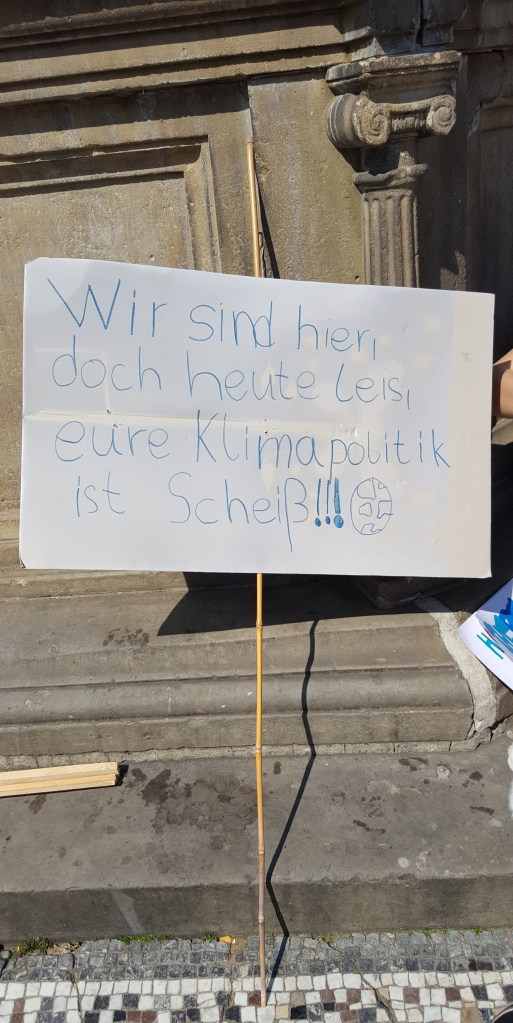 Wir sind hier,
doch heute leis,
eure Klimapolitik
ist Scheiß!!!